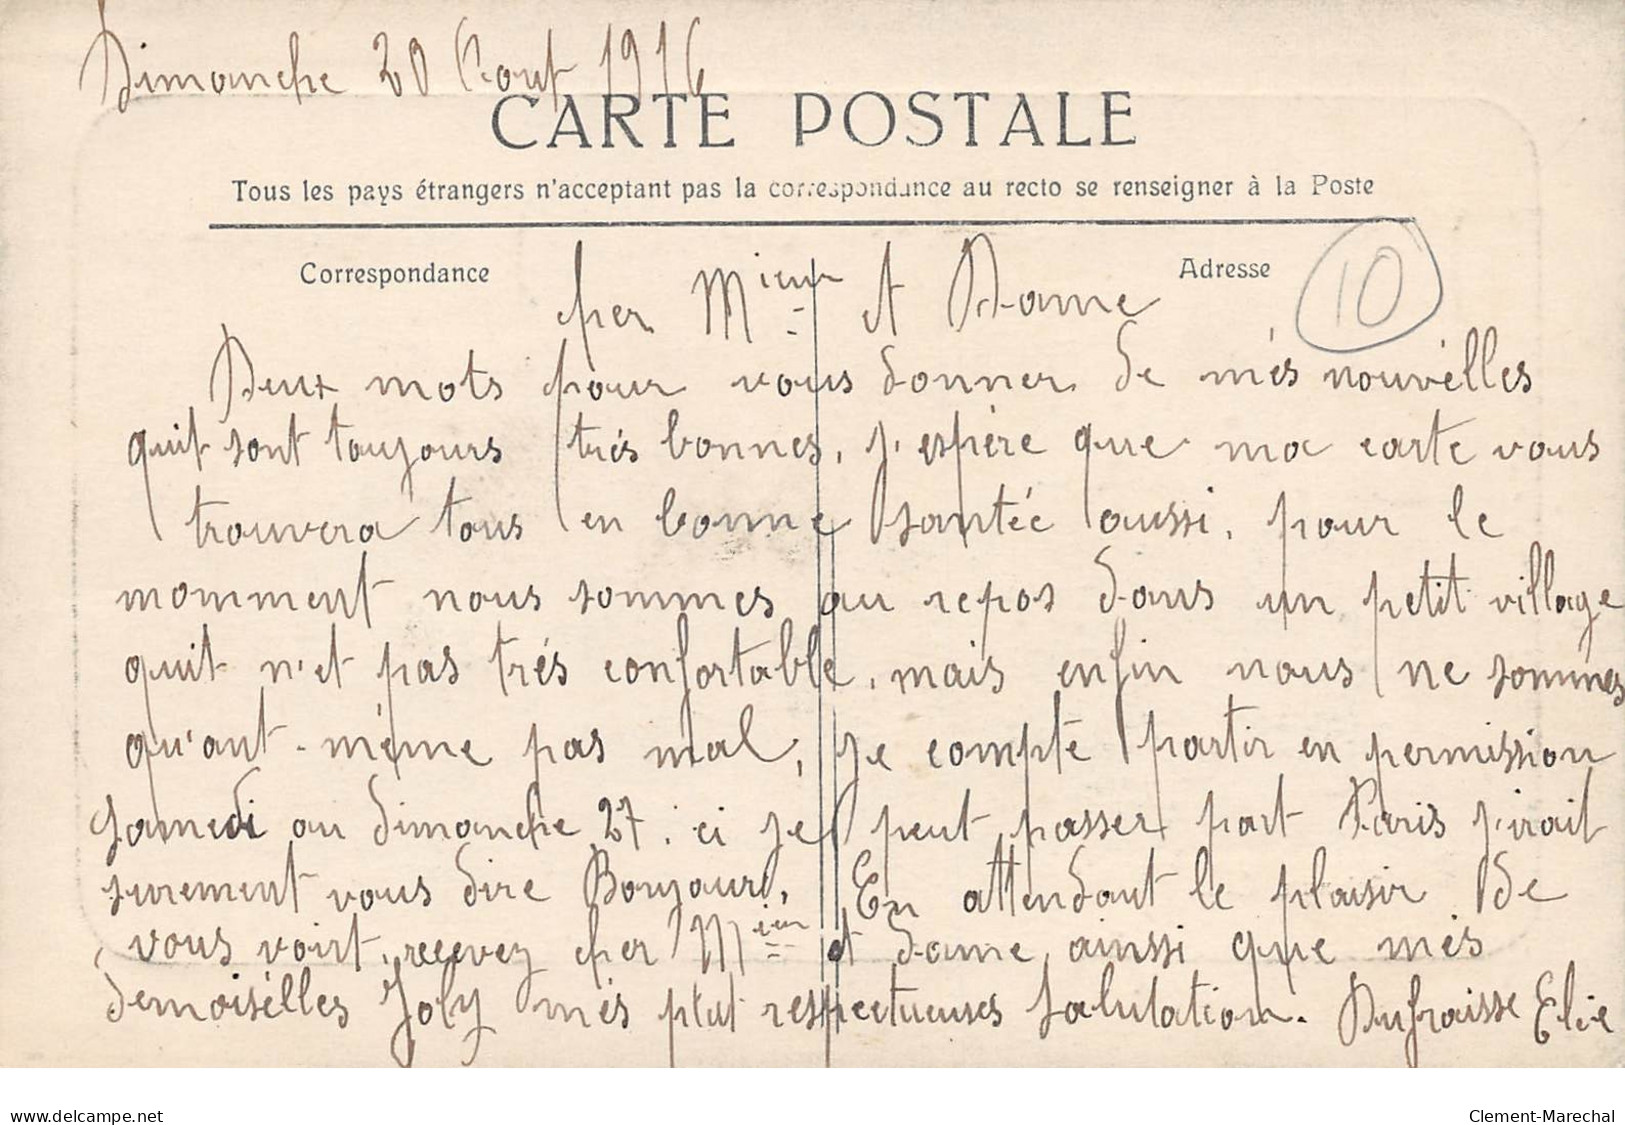 Dimanche 20 Aout 1916
CARTE POSTALE
Tous les pays étrangers n'acceptant pas la correspondance au recto se renseigner à la Poste
Correspondance
Adresse
10
cher Mieur et Dame
Deux mots pour vous donner de més nouvélles
quit sont toujours trés bonnes, j'espère que ma carte vous
trouvera tous en bonne santée aussi, pour le
momment nous sommes au repos dans un petit village
quit n'et pas trés confortable, mais enfin nous ne sommes
qu'ant-même pas mal, je compte partir en permission
samedi au dimanche 27, ci je peut passer part Paris j'irait
surement vous dire Bonjour, En attendant le plaisir de
vous voirt, recevez cher Mieur et dame, ainsi que més
demoisélles Joly més plut respectueuses salutation. Dufraisse Elie
www.delcampe.net
Clement-Marechal